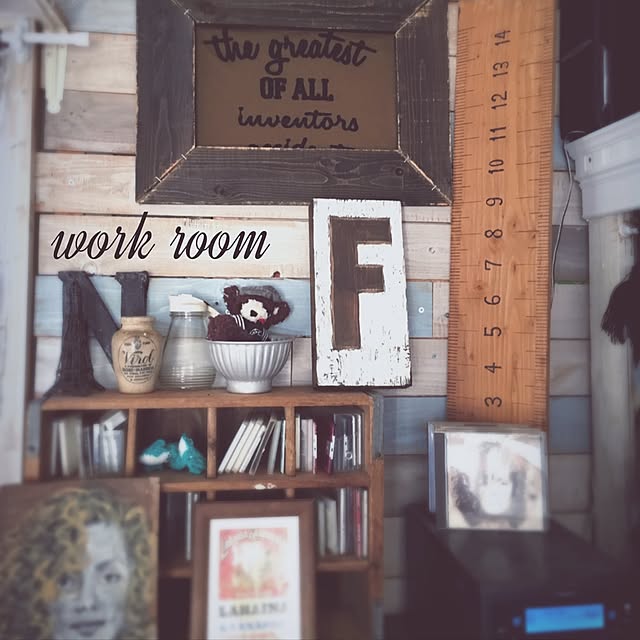 the greatest
OF ALL
inventors
work room
N
F
Virol
14
13
12
11
10
9
8
7
6
5
4
3